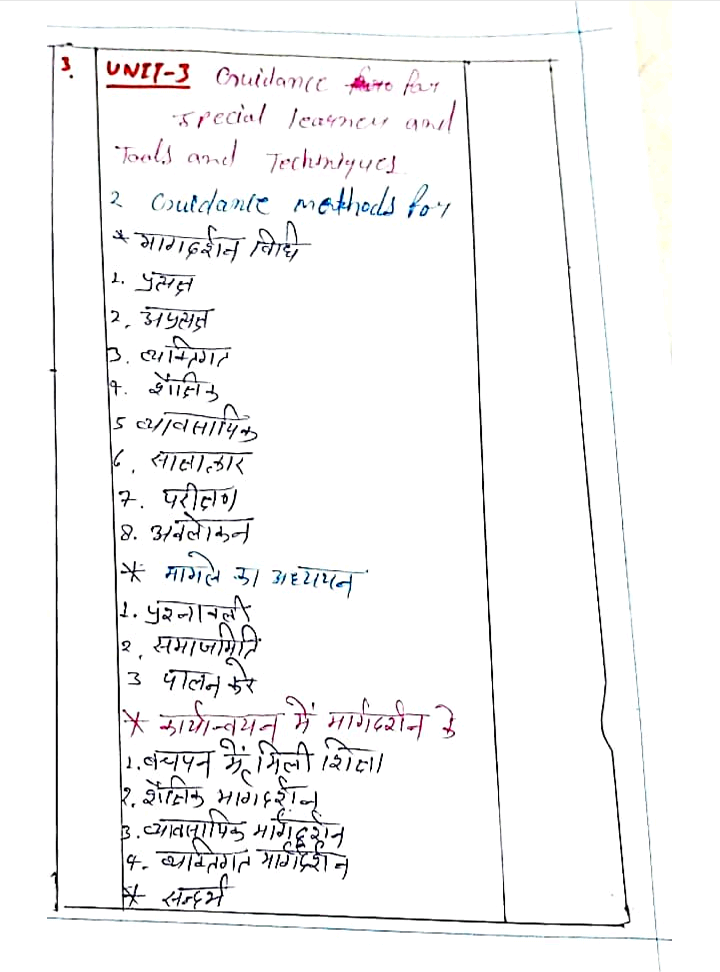 3. UNIT-3 Guidance for
special learner and
Tools and Techniques.
2 Guidance methods for
* मार्गदर्शन विधि
1. प्रत्यक्ष
2. अप्रत्यक्ष
3. व्यक्तिगत
4. शैक्षिक
5 व्यावसायिक
6. साक्षात्कार
7. परीक्षण
8. अवलोकन
* मामले का अध्ययन
1. प्रश्नावली
2. समाजमिति
3 पालन करे
* कार्यान्वयन में मार्गदर्शन के
1. बचपन में मिली शिक्षा
2. शैक्षिक मार्गदर्शन
3. व्यावसायिक मार्गदर्शन
4. व्यक्तिगत मार्गदर्शन
* सन्दर्भ